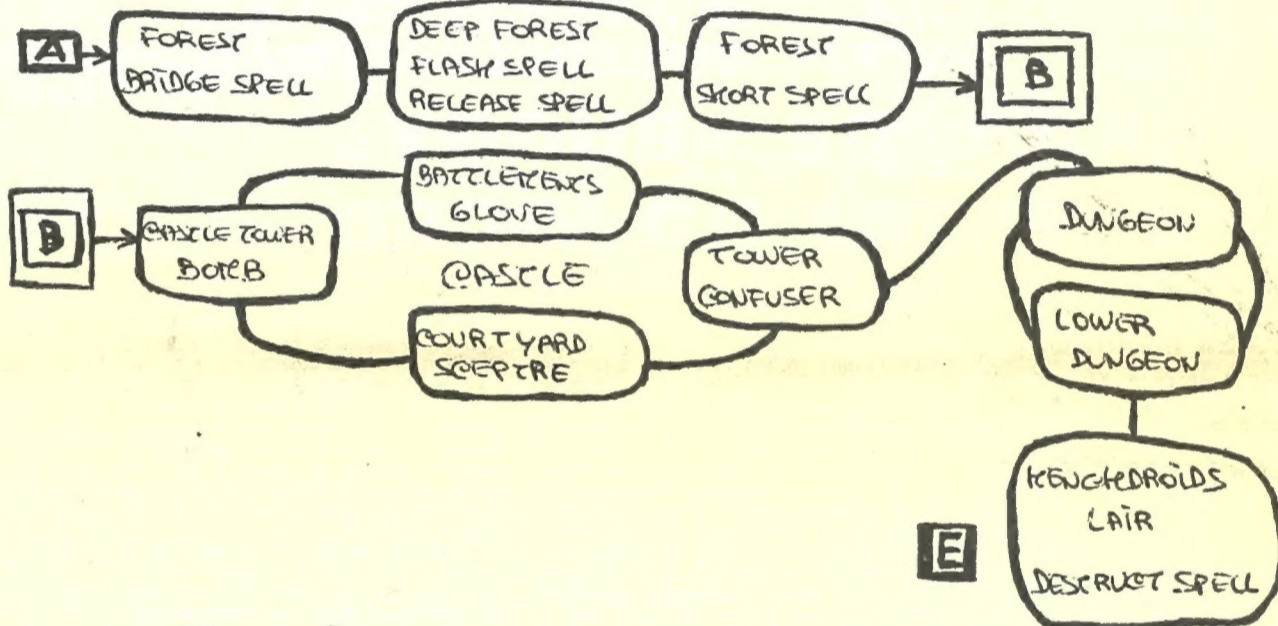 A
FOREST
BRIDGE SPELL
DEEP FOREST
FLASH SPELL
RELEASE SPELL
FOREST
SHORT SPELL
B
B
CASTLE TOWER
BOMB
BATTLEMENTS
GLOVE
CASTLE
COURTYARD
SCEPTRE
TOWER
CONFUSER
DUNGEON
LOWER
DUNGEON
HENCHDROIDS
LAIR
DESTRUCT SPELL
E